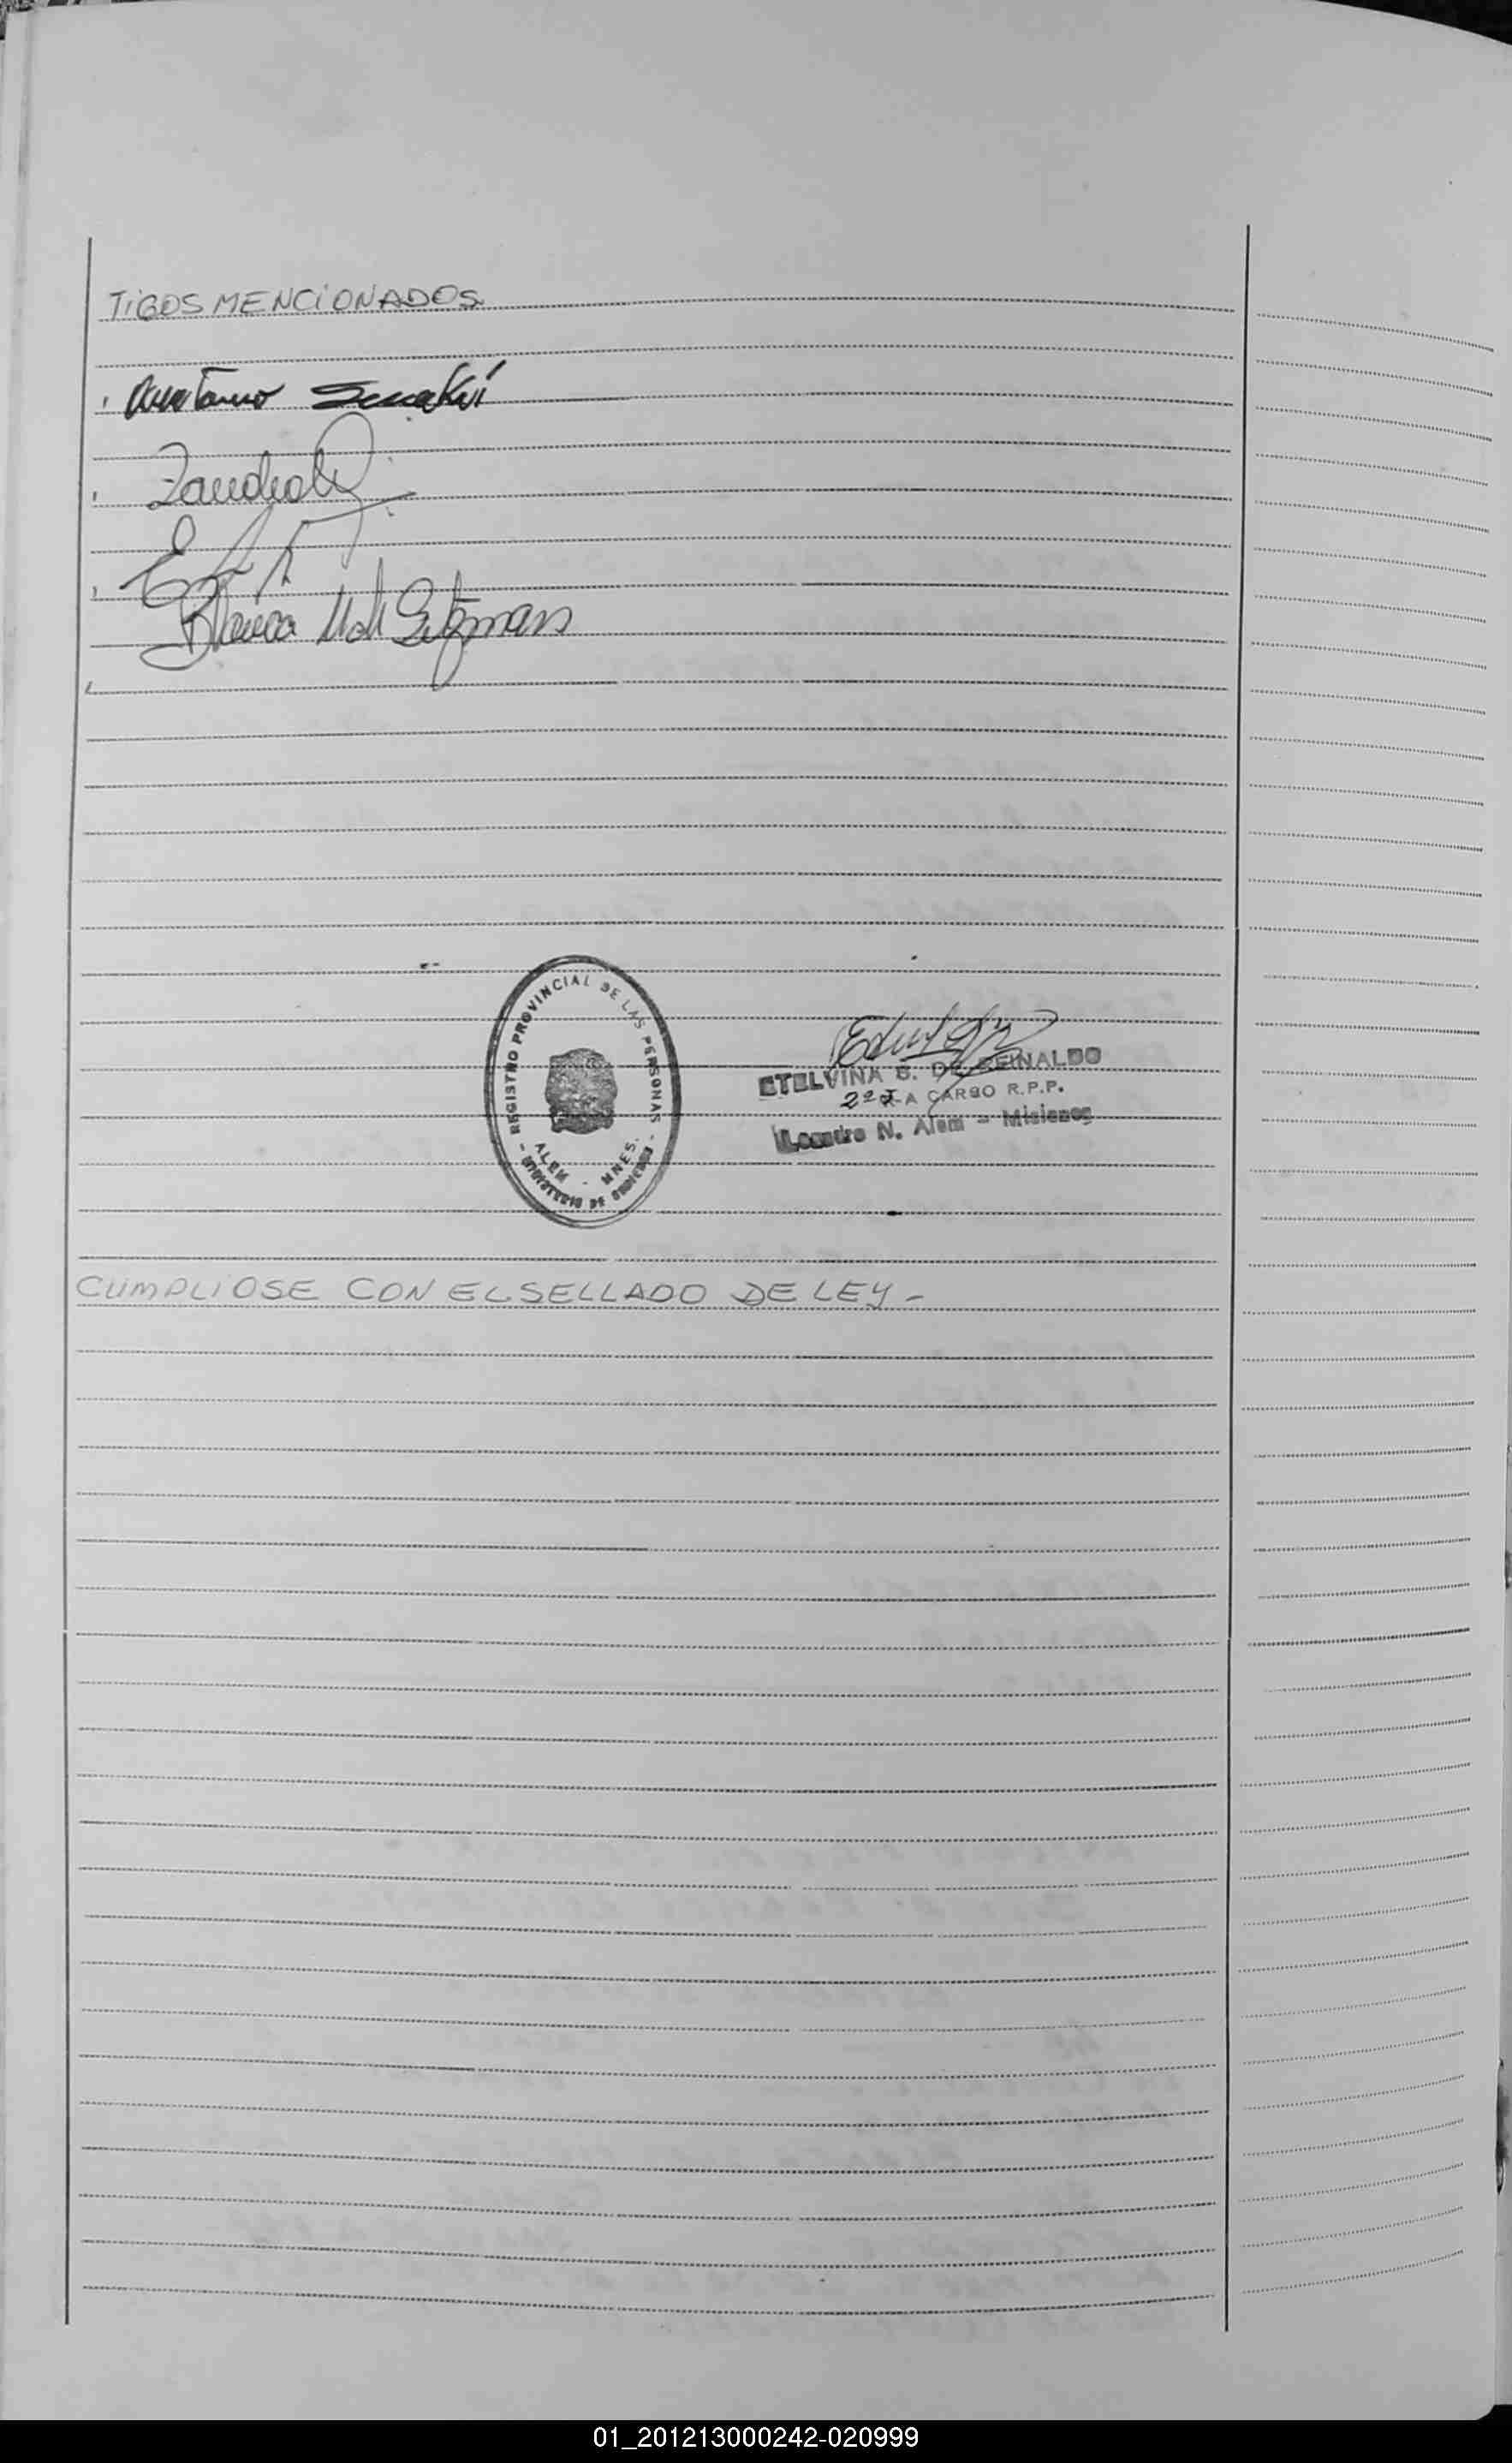 TIGOS MENCIONADOS
Blanca
REGISTRO PROVINCIAL DE LAS PERSONAS
ALEM - MNES.
MINISTERIO DE GOBIERNO
ETELVINA S. DE REINALDO
A CARGO R.P.P.
Leandro N. Alem - Misiones
CUMPLIOSE CON EL SELLADO DE LEY -
01_201213000242-020999